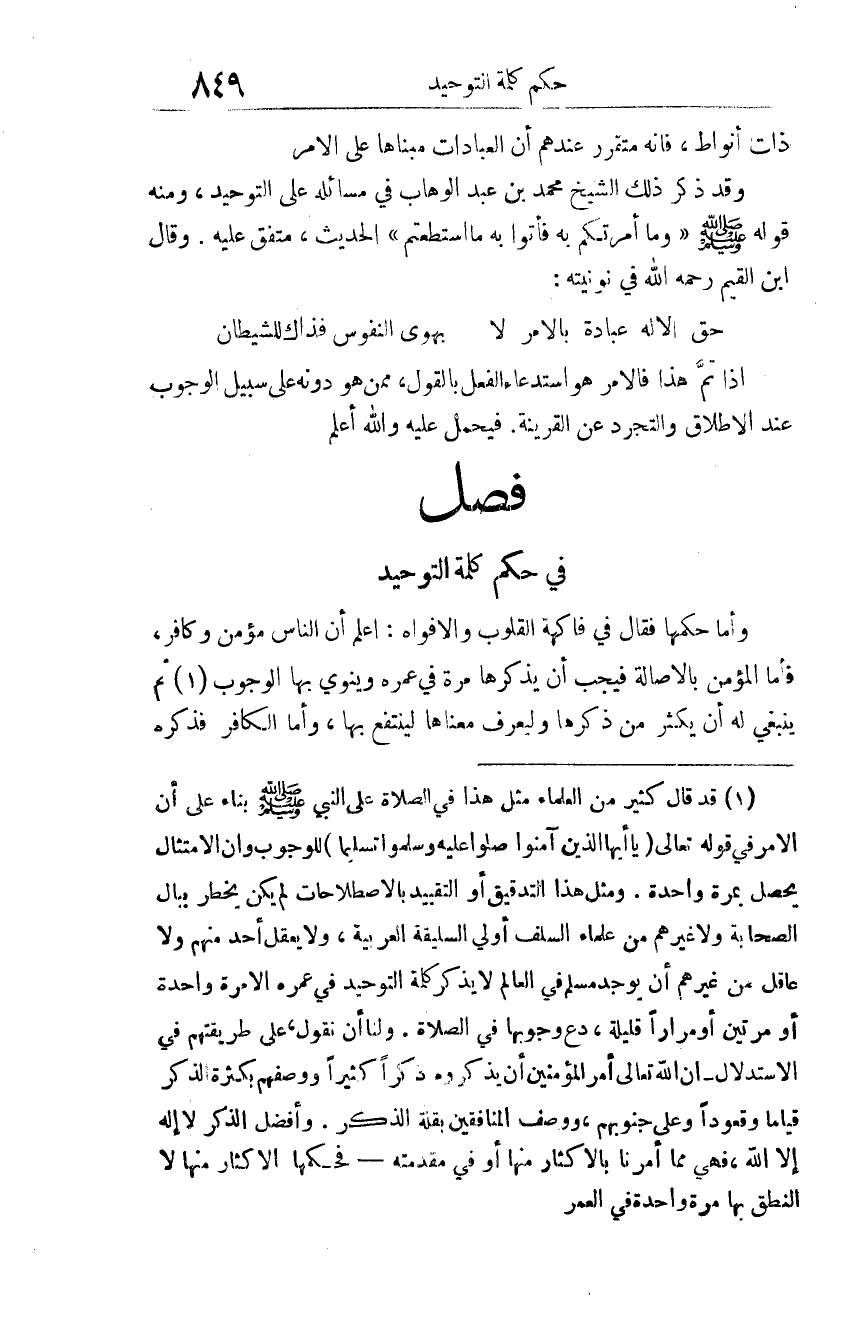 حكم كلمة التوحيد ٨٤٩
ذات أنواط ، فانه متقرر عندهم أن العبادات مبناها على الامر
وقد ذكر ذلك الشيخ محمد بن عبد الوهاب في مسائله على التوحيد ، ومنه
قوله ﷺ « وما أمرتكم به فأتوا به ما استطعتم » الحديث ، متفق عليه . وقال
ابن القيم رحمه الله في نونيته :
حق الاله عبادة بالامر لا بهوى النفوس فذاك للشيطان
اذا تمَّ هذا فالامر هو استدعاء الفعل بالقول، ممن هو دونه على سبيل الوجوب
عند الاطلاق والتجرد عن القرينة. فيحمل عليه والله أعلم
فصل
في حكم كلمة التوحيد
وأما حكمها فقال في فاكهة القلوب والافواه : اعلم أن الناس مؤمن وكافر،
فأما المؤمن بالاصالة فيجب أن يذكرها مرة في عمره وينوي بها الوجوب (١) ثم
ينبغي له أن يكثر من ذكرها وليعرف معناها لينتفع بها ، وأما الكافر فذكره
(١) قد قال كثير من العلماء مثل هذا في الصلاة على النبي ﷺ بناء على أن
الامر في قوله تعالى ( يا أيها الذين آمنوا صلوا عليه وسلموا تسليما ) للوجوب وان الامتثال
يحصل بمرة واحدة . ومثل هذا التدقيق أو التقييد بالاصطلاحات لم يكن يخطر ببال
الصحابة ولا غيرهم من علماء السلف أولي السليقة العربية ، ولا يعقل أحد منهم ولا
عاقل من غيرهم أن يوجد مسلم في العالم لا يذكر كلمة التوحيد في عمره الا مرة واحدة
أو مرتين أو مراراً قليلة ، دع وجوبها في الصلاة . ولنا أن نقول، على طريقتهم في
الاستدلال ـ ان الله تعالى أمر المؤمنين أن يذكروه ذكراً كثيراً ووصفهم بكثرة الذكر
قياما وقعوداً وعلى جنوبهم ، ووصف المنافقين بقلة الذكر . وأفضل الذكر لا إله
إلا الله ، فهي مما أمرنا بالاكثار منها أو في مقدمته — فحكمها الاكثار منها لا
النطق بها مرة واحدة في العمر